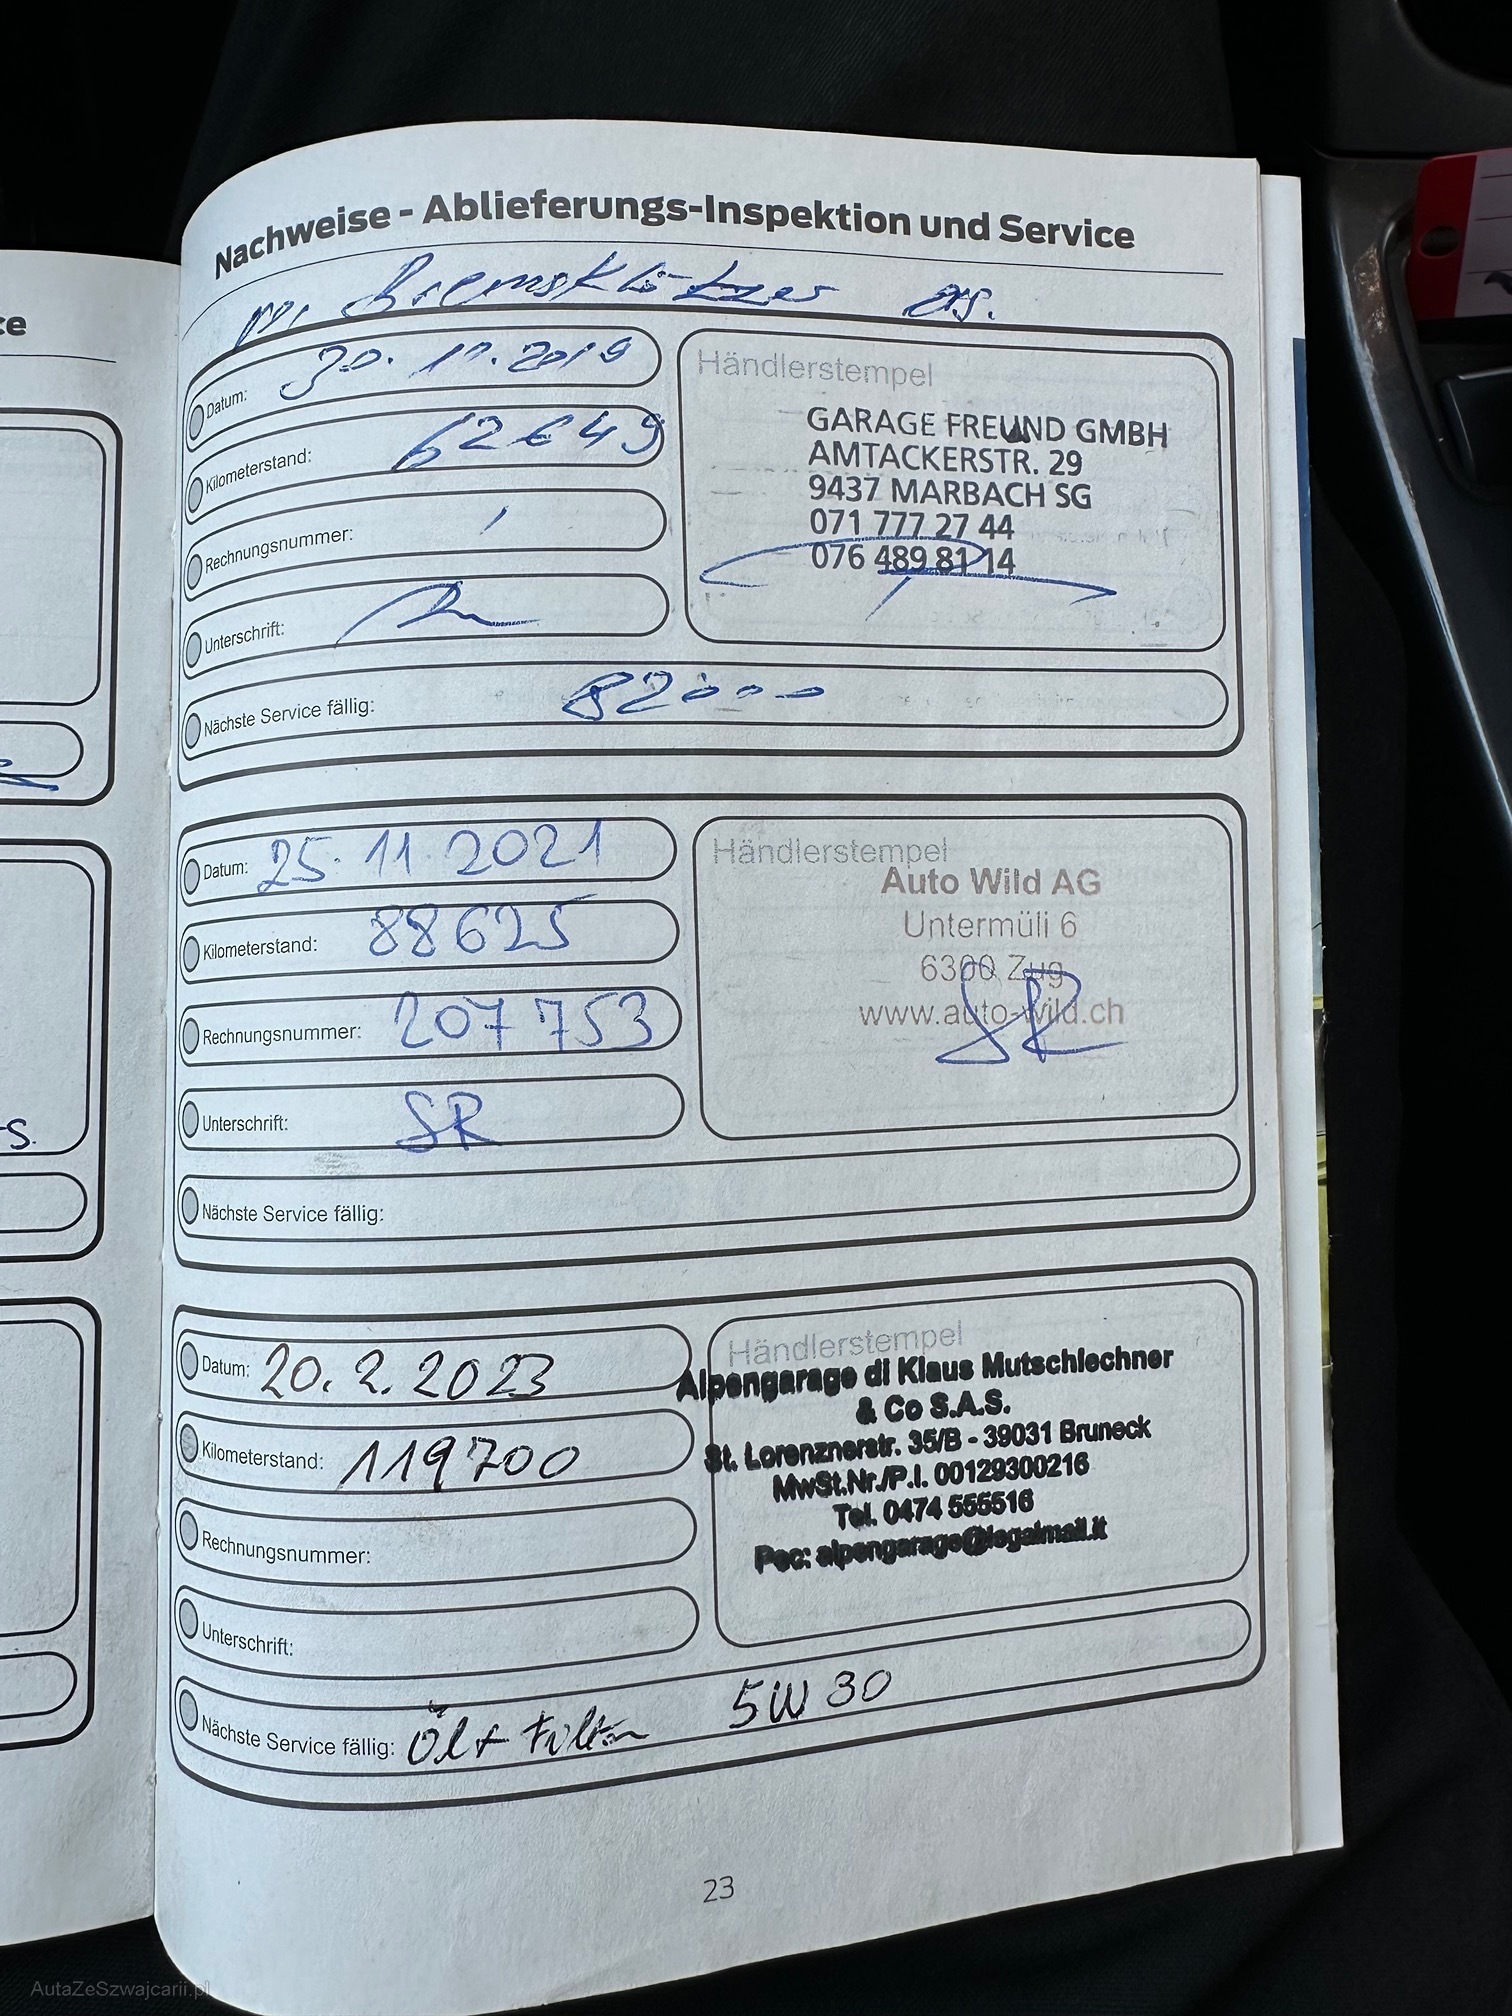 ce
Nachweise - Ablieferungs-Inspektion und Service
Bremsklötzer
Datum: 30.11.2019
Kilometerstand: 62649
Rechnungsnummer: /
Unterschrift:
Nächste Service fällig: 82000
Händlerstempel
GARAGE FREUND GMBH
AMTACKERSTR. 29
9437 MARBACH SG
071 777 27 44
076 489 81 14
Datum: 25.11.2021
Kilometerstand: 88625
Rechnungsnummer: 207753
Unterschrift: SR
Nächste Service fällig:
Händlerstempel
Auto Wild AG
Untermüli 6
6300 Zug
www.auto-wild.ch
SR
s.
Datum: 20.2.2023
Kilometerstand: 119700
Rechnungsnummer:
Unterschrift:
Nächste Service fällig: Öl+ Filter 5W30
Händlerstempel
Alpengarage di Klaus Mutschlechner
& Co S.A.S.
St. Lorenznerstr. 35/B - 39031 Bruneck
MwSt.Nr./P.I. 00129300216
Tel. 0474 555516
Pec: alpengarage@legalmail.it
23
AutaZeSzwajcarii.pl